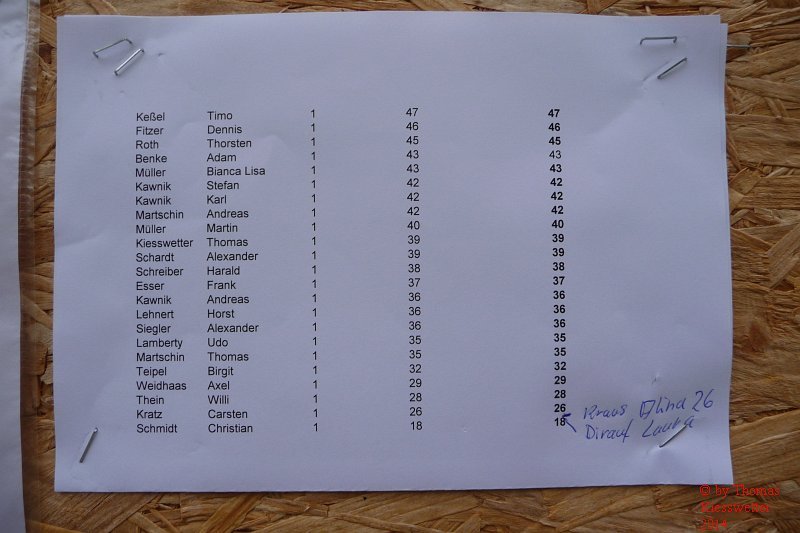 Keßel Timo 1 47 47
Fitzer Dennis 1 46 46
Roth Thorsten 1 45 45
Benke Adam 1 43 43
Müller Bianca Lisa 1 43 43
Kawnik Stefan 1 42 42
Kawnik Karl 1 42 42
Martschin Andreas 1 42 42
Müller Martin 1 40 40
Kiesswetter Thomas 1 39 39
Schardt Alexander 1 39 39
Schreiber Harald 1 38 38
Esser Frank 1 37 37
Kawnik Andreas 1 36 36
Lehnert Horst 1 36 36
Siegler Alexander 1 36 36
Lamberty Udo 1 35 35
Martschin Thomas 1 35 35
Teipel Birgit 1 32 32
Weidhaas Axel 1 29 29
Thein Willi 1 28 28
Kratz Carsten 1 26 26
Kraus 26
Schmidt Christian 1 18 18
Dirauf Laura
© by Thomas
Kiesswetter
2014